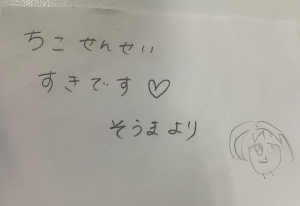 ちこ せんせい
すきです♡
そうまより